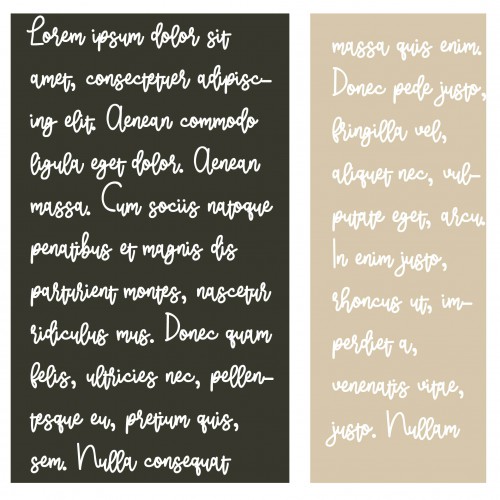 Lorem ipsum dolor sit
amet, consectetuer adipisc-
ing elit. Aenean commodo
ligula eget dolor. Aenean
massa. Cum sociis natoque
penatibus et magnis dis
parturient montes, nascetur
ridiculus mus. Donec quam
felis, ultricies nec, pellen-
tesque eu, pretium quis,
sem. Nulla consequat
massa quis enim.
Donec pede justo,
fringilla vel,
aliquet nec, vul-
putate eget, arcu.
In enim justo,
rhoncus ut, im-
perdiet a,
venenatis vitae,
justo. Nullam